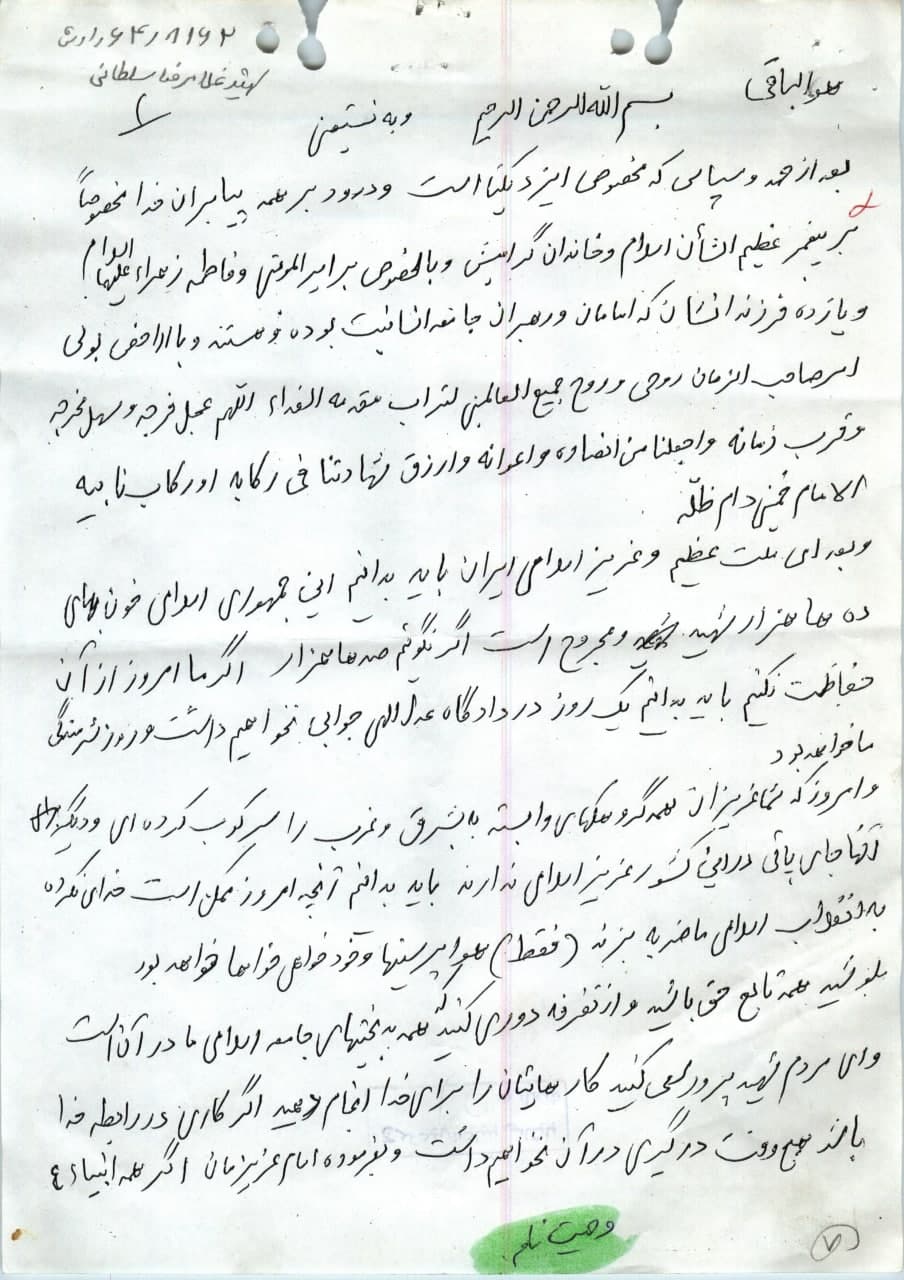 ۶۴/۸۱۶۲
شهید غلامرضا سلطانی
هو الباقی
بسم الله الرحمن الرحیم وبه نستعین
بعد از حمد و سپاس که مخصوص ایزد یکتا است و درود بر همه پیامبران خدا مخصوصاً
بر پیغمبر عظیم الشأن اسلام و خاندان گرامیش و بالخصوص بر امیر المومنین و فاطمه زهراء علیها السلام
و یازده فرزندانشان که امامان و رهبران جامعه انسانیت بوده و هستند و بالاخص بولی
امر صاحب الزمان روحی و روح جمیع العالمین لتراب مقدمه الفداء اللهم عجل فرجه و سهل مخرجه
و قرب زمانه واجعلنا من انصاره و اعوانه وارزق شهادتنا فی رکابه او رکاب نایبه
الامام خمینی دام ظلّه
و بعد ای ملت عظیم و عزیز اسلامی ایران باید بدانیم این جمهوری اسلامی خون بهای
ده ها هزار شهید و مجروح است اگر نگوئیم صدها هزار اگر ما امروز از آن
حفاظت نکنیم باید بدانیم یک روز در دادگاه عدل الهی جوابی نخواهیم داشت و روز شرمندگی
ما خواهد بود
و امروز که شما عزیزان همه گروهکهای وابسته به شرق و غرب را سرکوب کرده ای و دیگر
آنها جای پائی در این کشور عزیز اسلامی ندارند باید بدانیم آنچه امروز ممکن است خدای نکرده
به انقلاب اسلامی ما ضربه بزند (فقط) هوا پرستیها و خود خواهی خواهد بود
بکوشید همه تابع حق باشید و از تفرقه دوری کنید همه بدبختیهای جامعه اسلامی ما در آن است
و ای مردم شهید پرور سعی کنید کارهایتان را برای خدا انجام دهید اگر کاری در رابطه خدا
باشد هیچ وقت درگیری در آن نخواهیم داشت و بفرموده امام عزیزمان اگر همه انبیاء ع
وصیت نامه